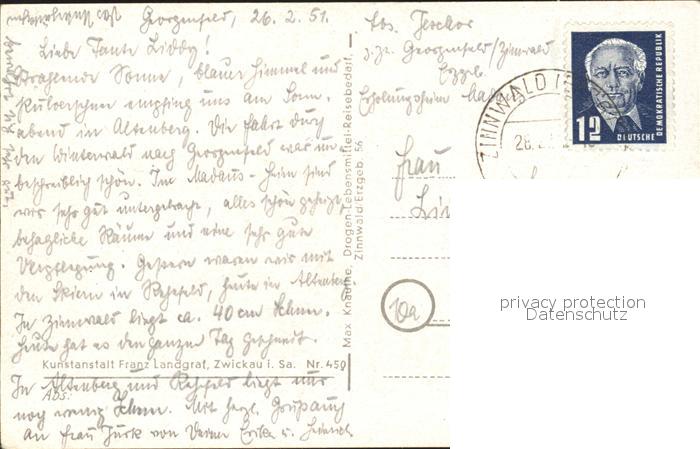 Georgenfeld, 26.2.51.
Liebe Tante Liddy!
Strahlende Sonne, blauer Himmel und
Pulverschnee empfing uns am Sonn-
abend in Altenberg. Die Fahrt durch
den Winterwald nach Georgenfeld war un-
beschreiblich schön. Im Madaus-Heim sind
wir sehr gut untergebracht, alles schön geheizt,
behagliche Räume und eine sehr gute
Verpflegung. Gestern waren wir mit
den Skiern in Rehefeld, heute in Altenberg.
In Zinnwald liegt ca. 40 cm Schnee.
Heute hat es den ganzen Tag geschneit.
Kunstanstalt Franz Landgraf, Zwickau i. Sa. Nr. 459
In Altenberg und Rehefeld liegt nur
Abs.:
noch wenig Schnee. Mit herzl. Gruß auch
an Frau Jurk von Deiner Erika u. Heinrich
Max Knauthe, Drogen-Lebensmittel-Reisebedarf,
Zinnwald/Erzgeb. 56
Abs.
z. Zt. Georgenfeld/Zinnwald
Erzgeb.
Erholungsheim Madaus
Frau
ZINNWALD
26.2.
12
DEUTSCHE
DEMOKRATISCHE REPUBLIK
10a
privacy protection
Datenschutz